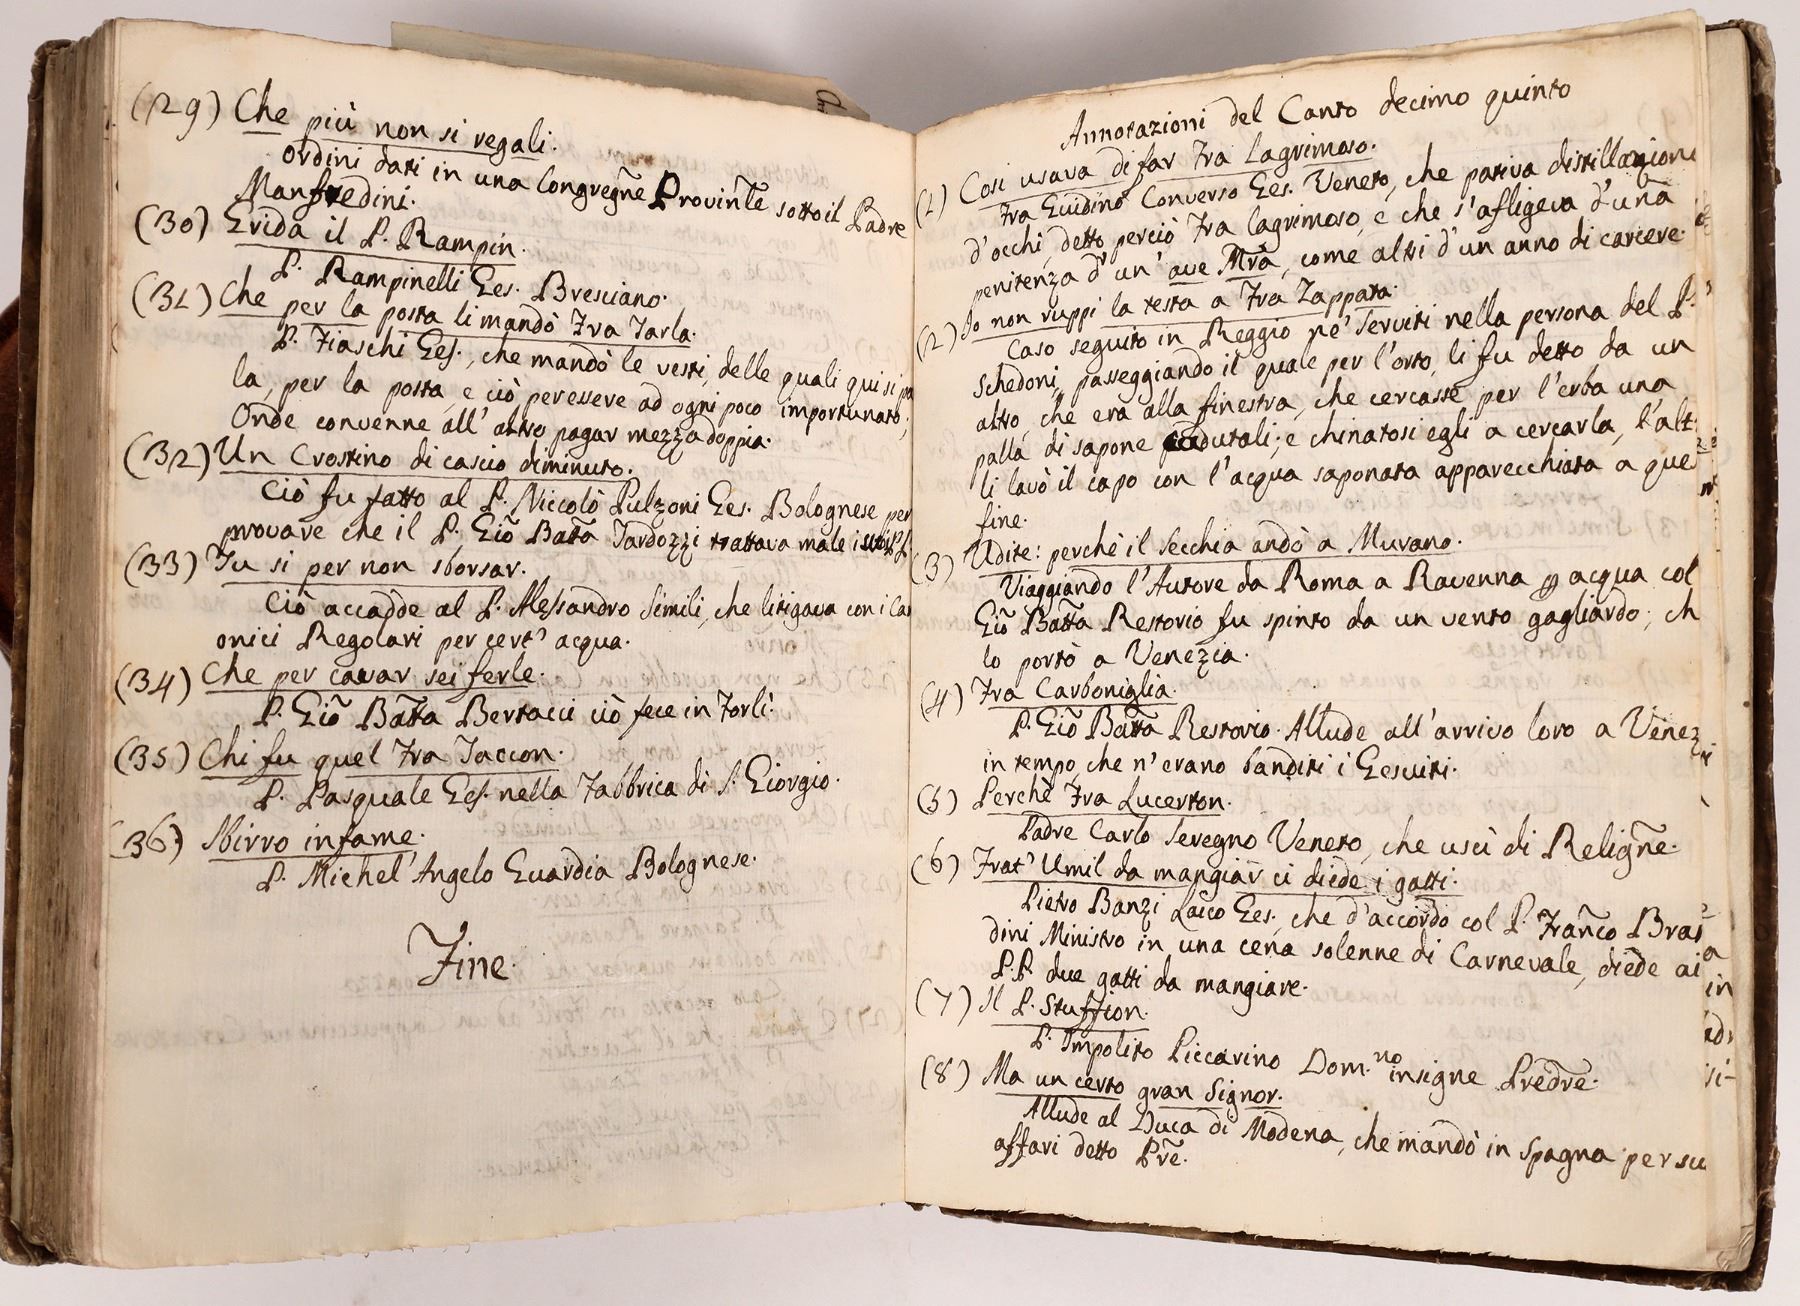 (29) Che più non si regali.
Ordini dati in una Congregñe Provinl̃e sotto il Padre
Manfredini.
(30) Grida il P. Rampin.
P. Rampinelli Ges. Bresciano.
(31) Che per la posta li mandò Fra Tarla.
P. Fiaschi Ges., che mandò le vesti, delle quali qui si
la, per la posta, e ciò per essere ad ogni poco importunato;
Onde convenne all' altro pagar mezza doppia.
(32) Un Crostino di cascio diminuto.
Ciò fu fatto al P. Niccolò Pulzoni Ges. Bolognese per
provare che il P. Giõ Batt̃a Tardozzi trattava male i
(33) Fu si per non sborsar.
Ciò accadde al P. Alessandro Simili, che litigava con i Ca
onici Regolari per cert' acqua.
(34) Che per cavar sei ferle.
P. Giõ Batt̃a Bertacci ciò fece in Forlì.
(35) Chi fu quel Fra Taccon.
P. Pasquale Ges. nella Fabbrica di S. Giorgio.
(36) Sbirro infame.
P. Michel' Angelo Guardia Bolognese.
Fine.
Annotazioni del Canto decimo quinto
(1) Così usava di far Fra Lagrimoso.
Fra Guidino Converso Ges. Veneto, che pativa distillazion
d'occhi, detto perciò Fra lagrimoso, e che s'afligeva d'una
penitenza d'un' ave Mr̃a, come altri d'un anno di carcere.
(2) Io non ruppi la testa a Fra Zappata.
Caso seguito in Reggio ne' Serviti nella persona del P.
Schedoni, passeggiando il quale per l'orto, li fu detto da un
altro, che era alla finestra, che cercasse per l'erba una
palla di sapone cadutali; e chinatosi egli a cercarla, l'alt
li lavò il capo con l'acqua saponata apparecchiata a que
fine.
(3) Udite: perchè il Secchia andò a Murano.
Viaggiando l'Autore da Roma a Ravenna acqua col
Giõ Batt̃a Restorio fu spinto da un vento gagliardo; ch
lo portò a Venezia.
(4) Fra Carboniglia.
P. Giõ Batt̃a Restorio. Allude all'arrivo loro a Venez
in tempo, che n'erano banditi i Gesuiti.
(5) Perchè Fra Lucerton.
Padre Carlo Seregno Veneto, che uscì di Religñe.
(6) Frat' Umil da mangiar ci diede i gatti.
Pietro Banzi Laico Ges., che d'accordo col P. Frañco Bra
dini Ministro in una cena solenne di Carnevale, diede ai
P.P. due gatti da mangiare.
(7) Il P. Stuffion.
P. Impolito Piccarino Dom.no insigne Predr̃e.
(8) Ma un certo gran Signor.
Allude al Duca di Modena, che mandò in Spagna per su
affari detto Pr̃e.